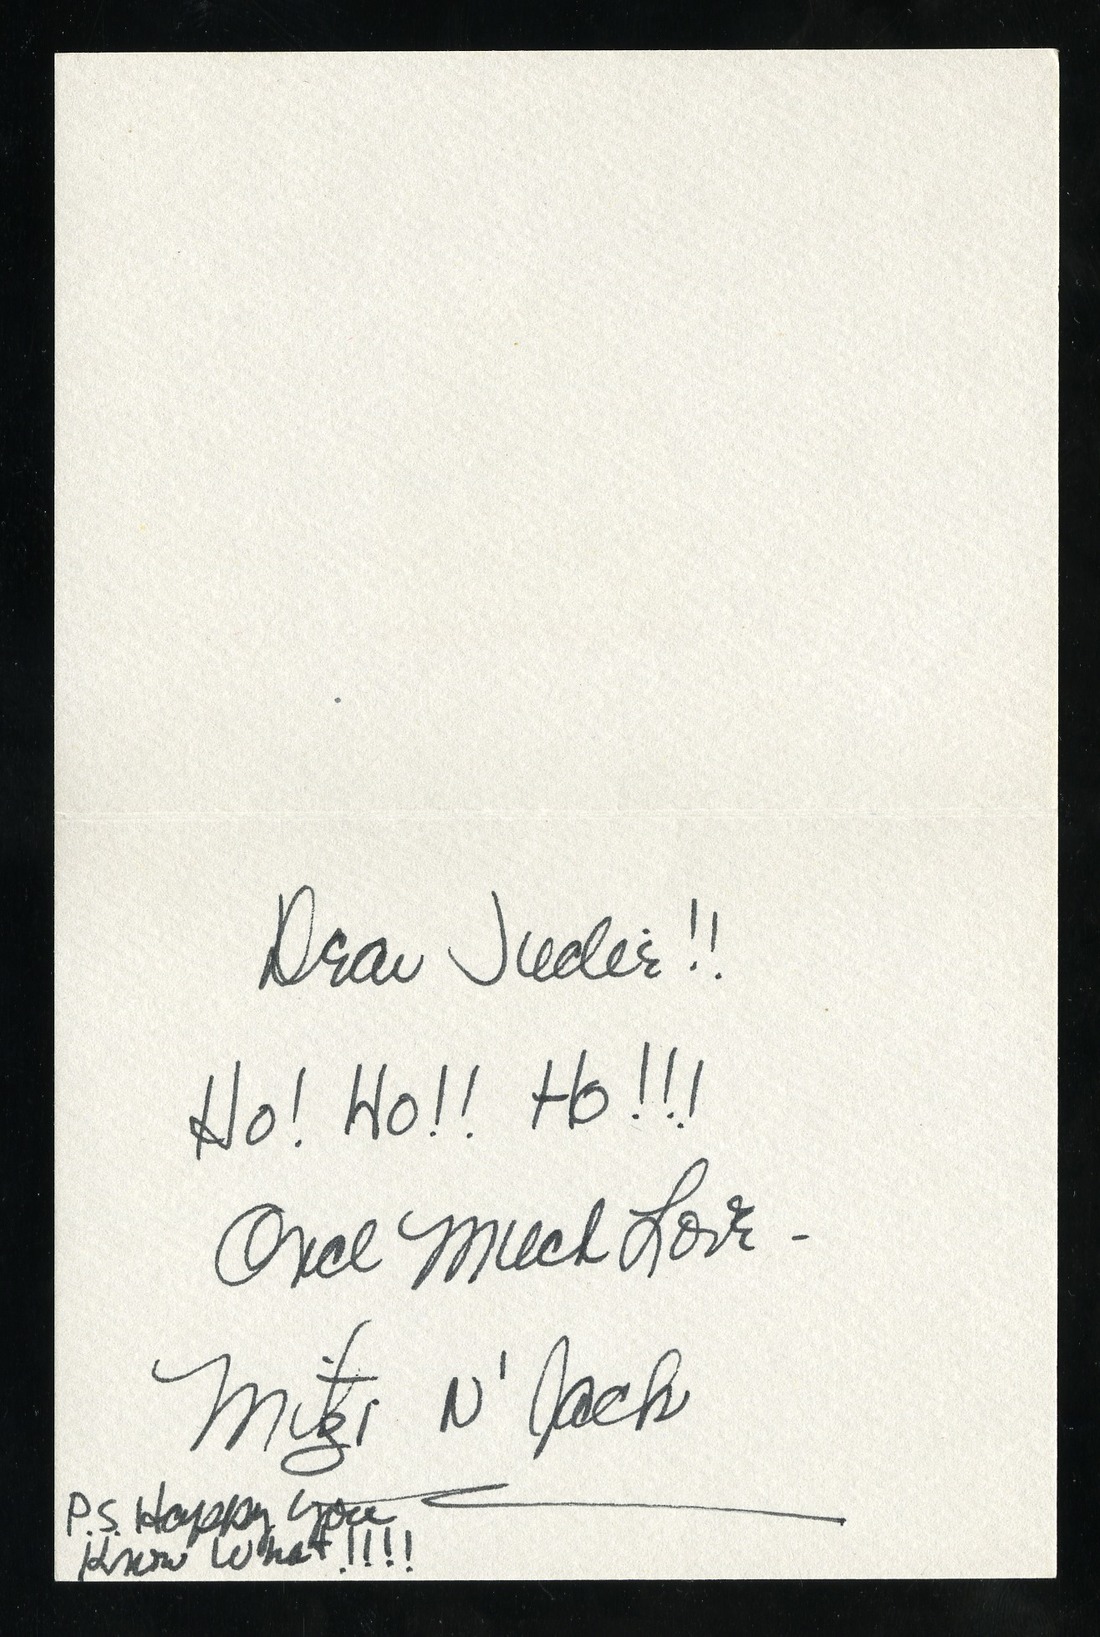 Dear Judie!!
Ho! Ho!! Ho!!!
Much Love -
Mitzi N' Jack
P.S. Happy You
Know What!!!!